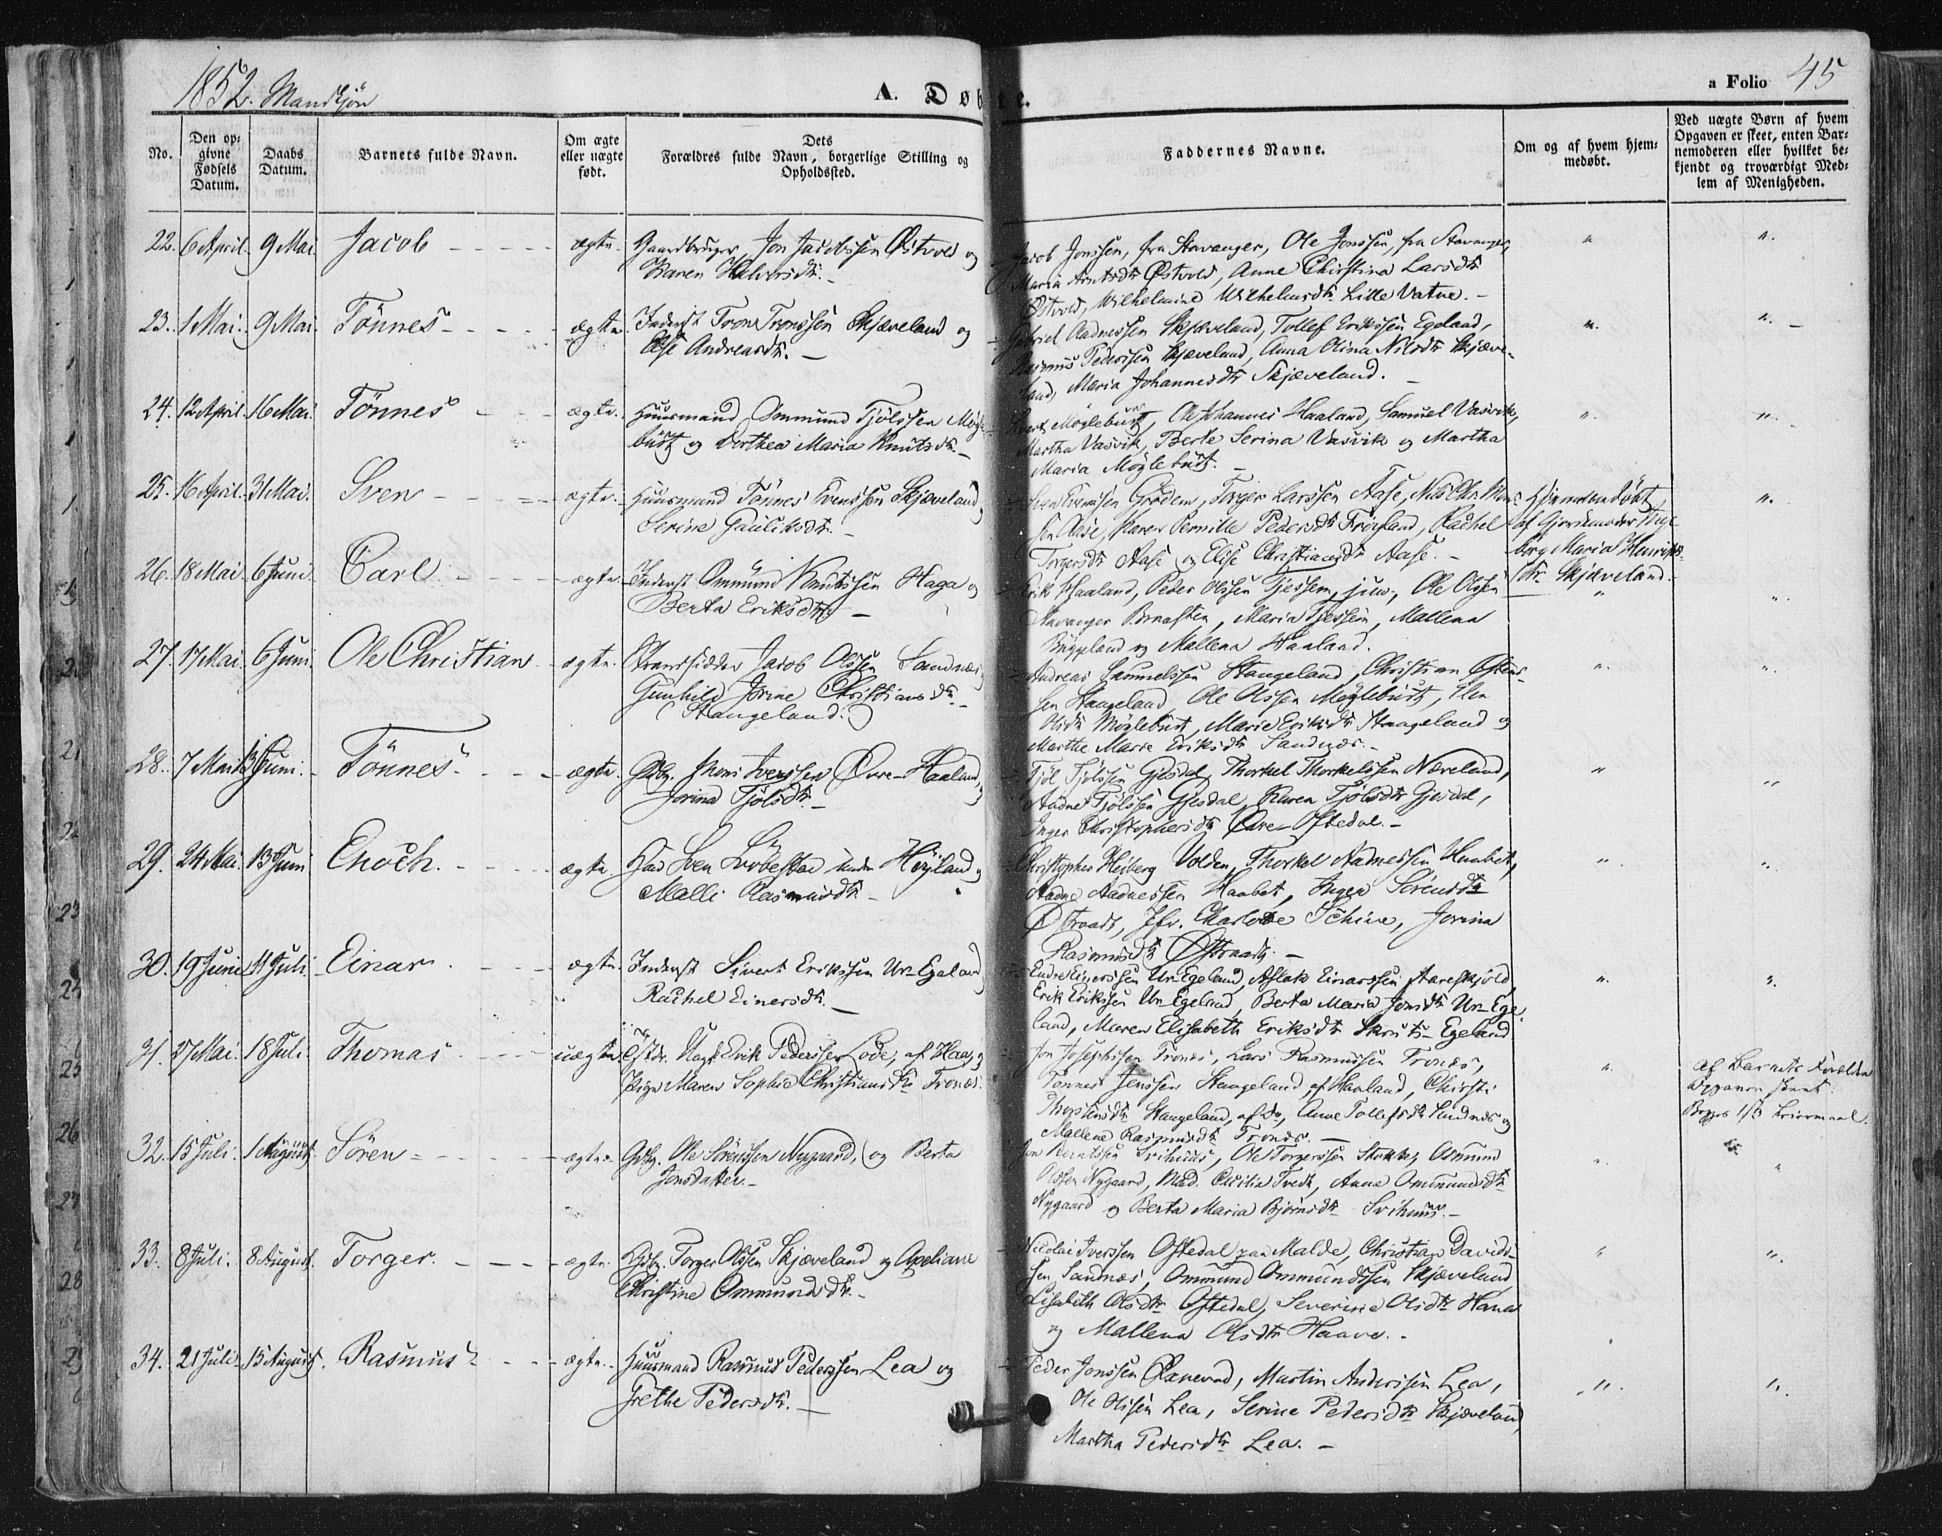 1852. Mandkjøn
A. Døbte.
a Folio 45
No.
Den opgivne Fødsels Datum.
Daabs Datum.
Barnets fulde Navn.
Om ægte eller uægte født.
Dets Forældres fulde Navn, borgerlige Stilling og Opholdssted.
Faddernes Navne.
Om og af hvem hjemmedøbt.
Ved uægte Børn af hvem Opgaven er skeet, enten Barnemoderen eller hvilket bekjendt og troværdigt Medlem af Menigheden.
22. 6 April 9 Mai Jacob ægte. Gaardbruger Jon Jacobssen Østvold og
Karen Halvorsdtr.
Jacob Jonssen, fra Stavanger, Ole Jonssen, fra Stavanger,
Maria Arntsdtr Østvold, Anne Christina Larsdtr
Østvold, Wilhelmine Wilhelmsdtr Lille Vatne.
23. 1 Mai. 9 Mai Tönnes ægte. Inderst Tron Tronssen Skjæveland og
Else Andreasdtr.
Gabriel Aadnessen Skjæveland, Tollef Erikssen Egeland,
Rasmus Pederssen Skjæveland, Anna Olina Nilsdtr Skjæve-
land, Maria Johannesdtr Skjæveland.
24. 12 April 16 Mai. Tönnes ægte. Huusmand Ommund Tjölssen Mögle-
bust og Dorthea Maria Knutsdtr.
Möglebust, Ole Johannes Haaland, Samuel Vasvik,
Martha Vasvik, Berte Serina Vasvik og Martha
Maria Möglebust.
25. 16 April. 31 Mai. Sven ægte. Huusmand Tönnes Svenssen Skjæveland
Serine Gauliksdtr.
Svenssen Grödem, Torger Larssen Aase, Nils Chr. Mons-
sen Aase, Karen Pernille Pedersdtr Fröiland, Rachel
Torgersdtr Aase og Elise Christiansdtr Aase.
Hjemmendöbt
af Gjordemoder Inge-
borg Maria Henriks-
dtr. Skjæveland.
26. 18 Mai 6 Juni Carl ægte. Inderst Ommund Knutssen Haga og
Berta Eriksdtr
Erik Haaland, Peder Olssen Tjessem, jun., Ole Olssen
Stavanger, Maria Tjessem, Mallena
Byggeland og Mallena Haaland.
27. 17 Mai 6 Juni Ole Christian ægte. Strandsidder Jacob Olssen Sandnæs
Gunhild Jorine Christiansdtr.
(Stangeland.)
Andreas Samuelssen Stangeland, Christian Ostens-
sen Stangeland, Ole Olssen Möglebust, Elen
Olsdtr Möglebust, Marie Eriksdtr Stangeland og
Marthe Marie Eriksdtr Sandnæs.
28. 7 Mai 13 Juni. Tönnes ægte. Gdbr. Mons Iverssen Övre Haaland,
Jorina Tjölsdtr.
Tjöl Tjölssen Gjesdal, Thorkel Thorkelssen Næveland,
Aadne Tjölssen Gjesdal, Karen Tjölsdtr Gjesdal,
Inger Christophersdtr Övre Oftedal.
29. 24 Mai. 13 Juni Enoch. ægte. Sven under Höyland
Malli Rasmusdtr.
Christopher Heiberg Volden, Thorkel Aadnessen Haabet,
Aadne Aadnessen Haabet, Inger Sörensdtr
Östraadt, Jfr. Charlotte Schive, Jorina
Rasmusdtr Östraadt.
30. 19 Juni 11 Juli Einar. ægte. Inderst Sivert Erikssen Ur-Egeland
Rachel Einersdtr.
Endre Einerssen Ur-Egeland, Aslak Einarssen Aareskjold,
Erik Erikssen Ur-Egeland, Berta Maria Jonsdtr Ur-Ege-
land, Maren Elisabeth Eriksdtr Skruts-Egeland
31. 17 Mai. 18 Juli. Thomas uægte Erik Pederssen Lode, af Haa, og
Pige Maren Sophie Christiansdtr Tronæs.
Jon Josephsen Tronæs, Lars Rasmussen Tronæs,
Tönnes Jenssen Stangeland, af Haaland, Chirsti
Thorstensdtr Stangeland, af do, Anne Tollefsdtr Sandnes og
Mallene Rasmusdtr Tronæs.
af Barnets Forældre
Opgaven skeet.
Begges 1ste Leiermaal.
32. 15 Juli. 1 August. Sören ægte. Gdbr. Ole Sörenssen Nygaard, og Berta
Jonsdatter.
Jon Berntsen Svihuus, Ole Torgerssen Stokke, Osmund
Olssen Nygaard, Mad. Cecilia Tvedt, Anne Ommundsdtr
Nygaard og Berta Maria Bjørnsdtr Svihuus.
33. 8 Juli. 8 August. Torger. ægte. Gdbr. Torger Olssen Skjæveland og Apeliane
Christine Ommundsdtr.
Nicolai Iverssen Oftedal paa Malde, Christian Davids-
sen Sandnæs, Ommund Ommundssen Skjæveland
Lisabeth Olsdtr Oftedal, Severine Olsdtr Hana
og Mallena Olsdtr Haave.
34. 21 Juli. 15 August. Rasmus ægte. Huusmand Rasmus Pederssen Lea og
Grethe Pedersdtr.
Peder Jonssen Öxnevad, Martin Anderssen Lea,
Ole Olssen Lea, Serine Pedersdtr Skjæveland,
Martha Pedersdtr Lea.